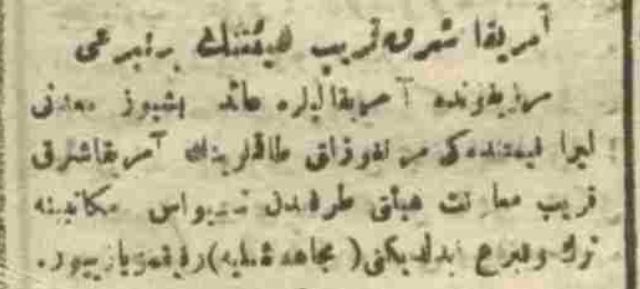 آمریقا شرق قریب هیئتنك برتبرعی
مرزیفونده آمریقالیلره عائد بشیوز معدنی
لیرا قیمتنده‌کی موزاق طاقملرینك آمریقا شرق
قریب معاونت هیأتی طرفندن سیواس مکاتبنه
ترك وتبرع ایدلدیکنی (مجاهدهٔ ملیه) رفیقمز یازییور.